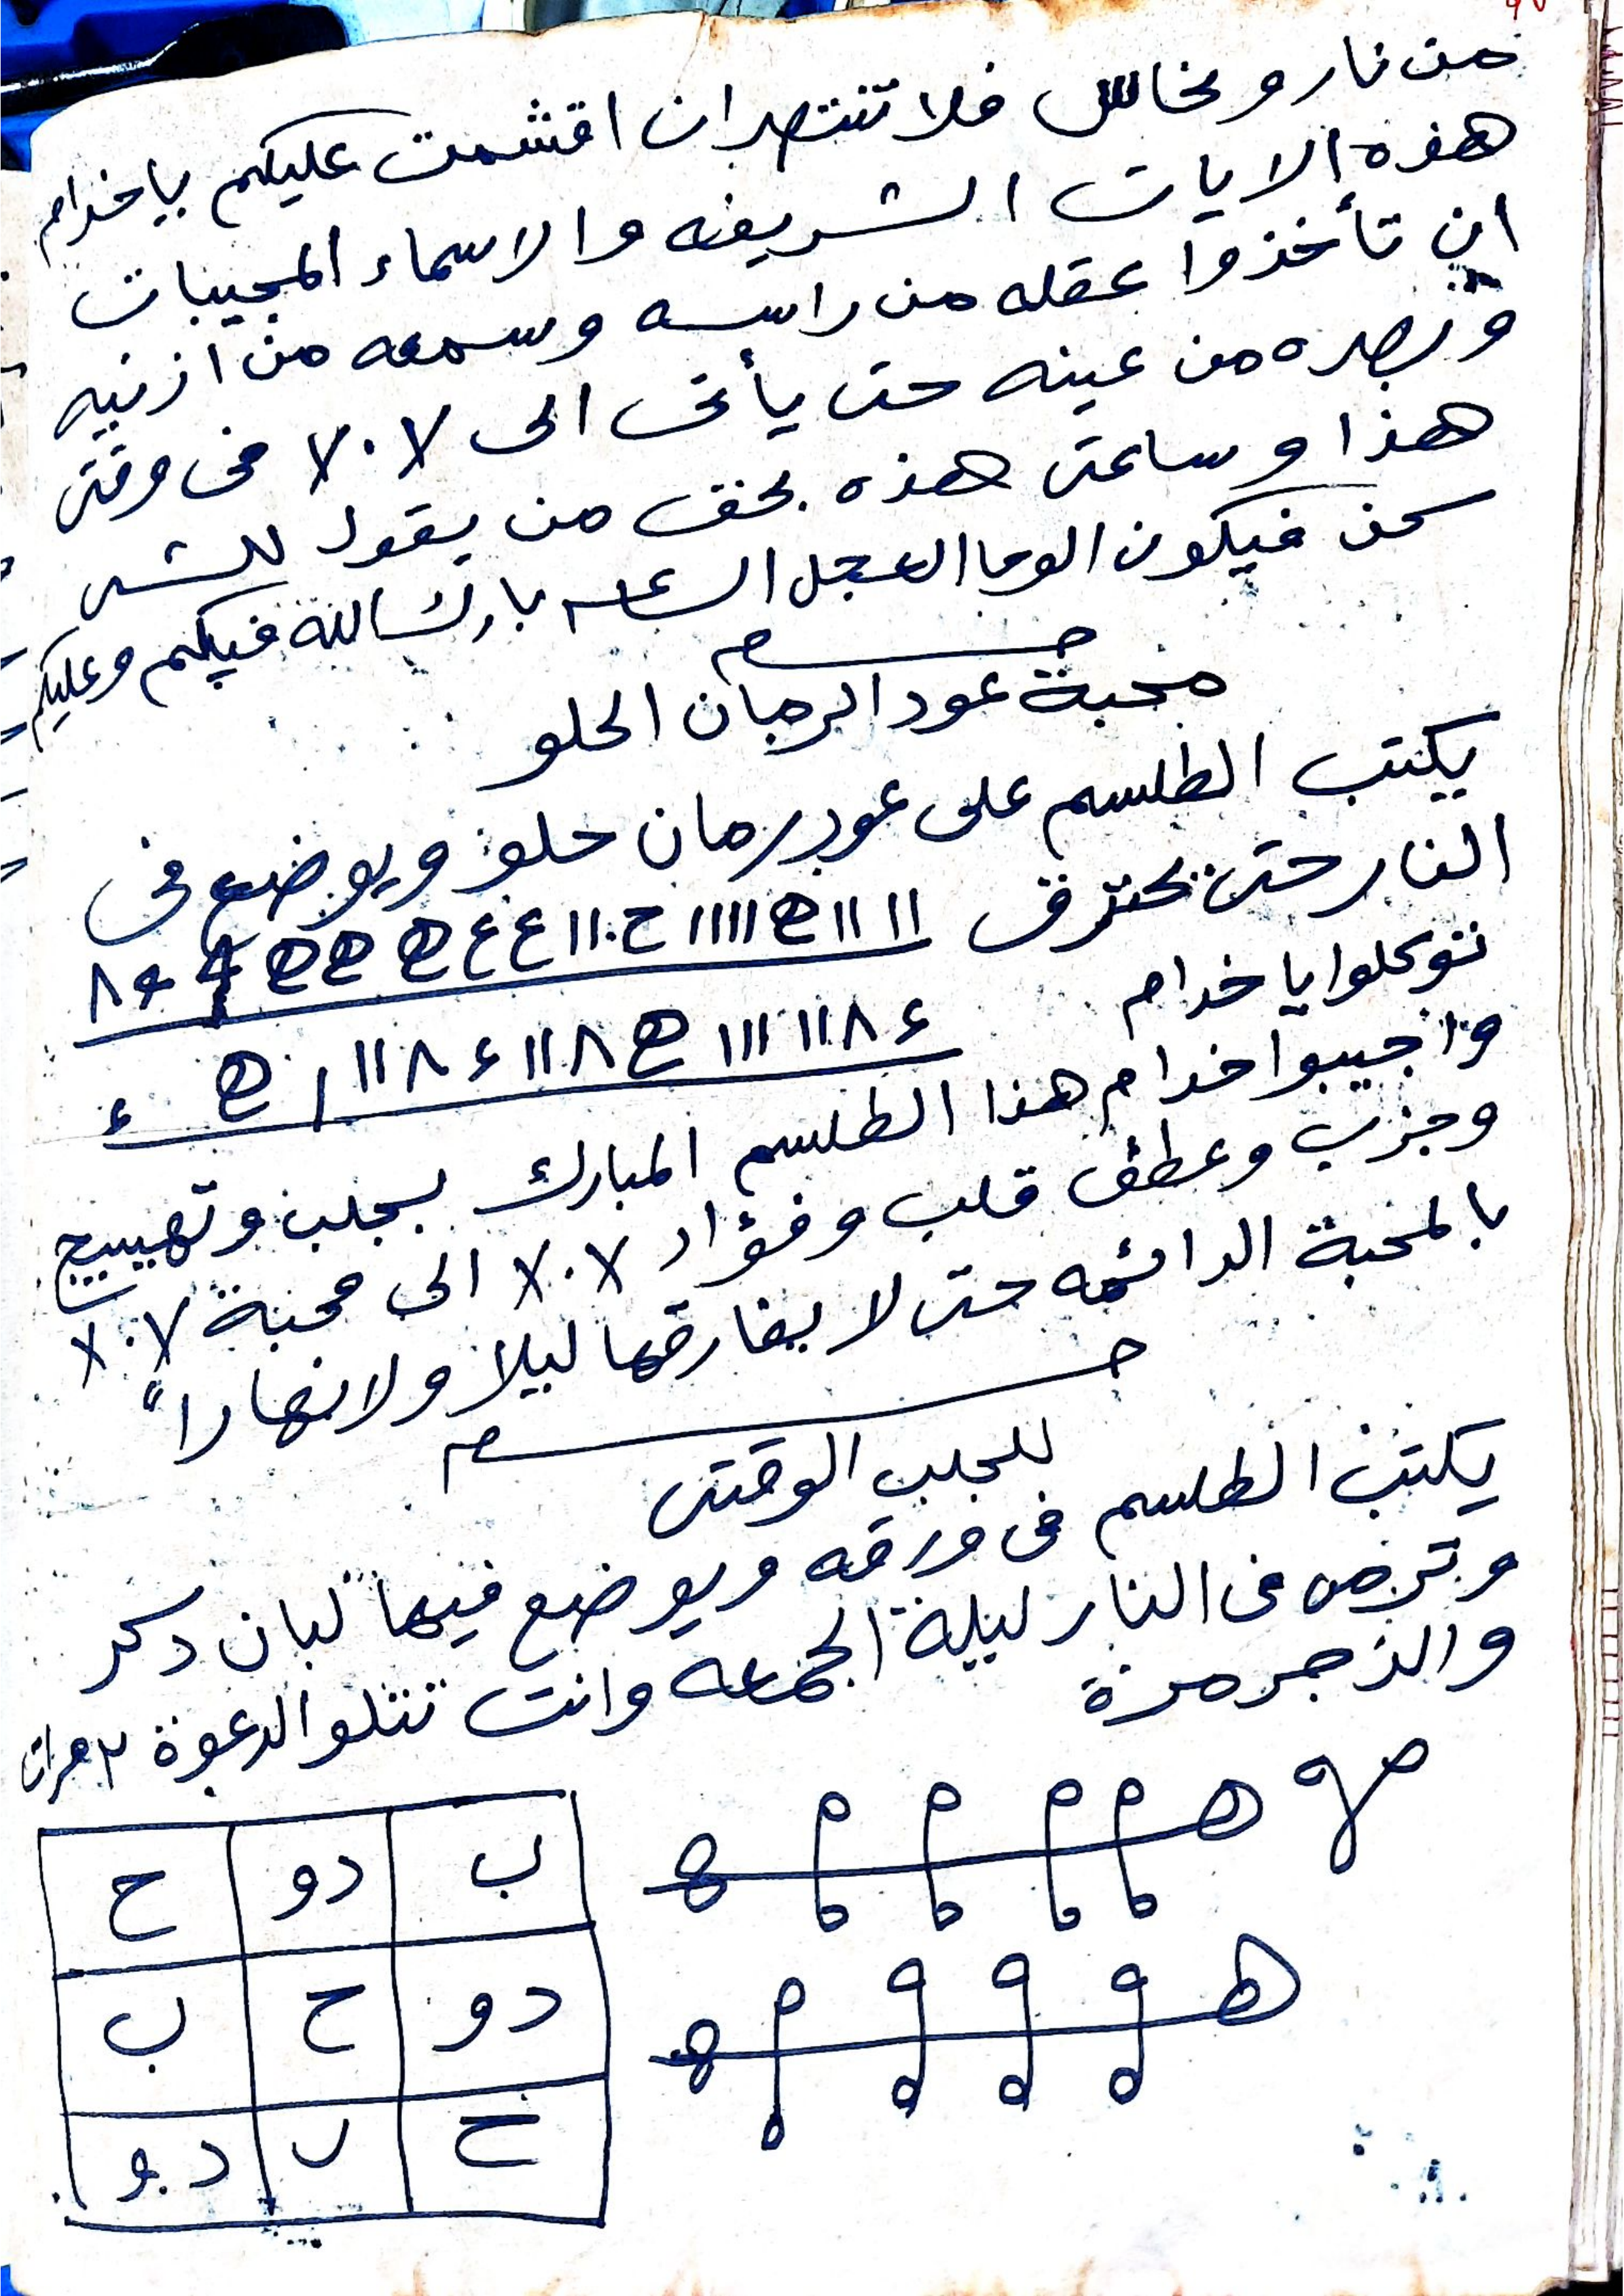 من نار ونحاس فلا تنتصران اقشمت عليكم ياخدام
هذه الايات الشريفه والاسماء المجيبات
ان تأخذوا عقله من راسه وسمعه من ازنيه
وبصره من عينه حتى يأتى الى ٧٠٧ فى وقتى
هذا وساعتى هذه بحق من يقول للشى
كن فيكون الوحا العجل الساعه بارك الله فيكم وعليكم
محبة عود الرمان الحلو
يكتب الطلسم على عود رمان حلو ويوضع فى
النار حتى يحترق
توكلوا يا خدام
واجيبوا خدام هذا الطلسم المبارك بجلب وتهييج
وجزب وعطف قلب وفؤاد ٧٠٧ الى محبة ٧٠٧
بالمحبة الدائمه حتى لا يفارقها ليلا ولا نهارا"
للجلب الوقتى
يكتب الطلسم فى ورقه ويوضع فيها لبان دكر
وترمى فى النار ليلة الجمعه وانت تتلو الدعوة ٣ مرات
والزجر مرة
ب دو ح
دو ح ب
ح ب دو